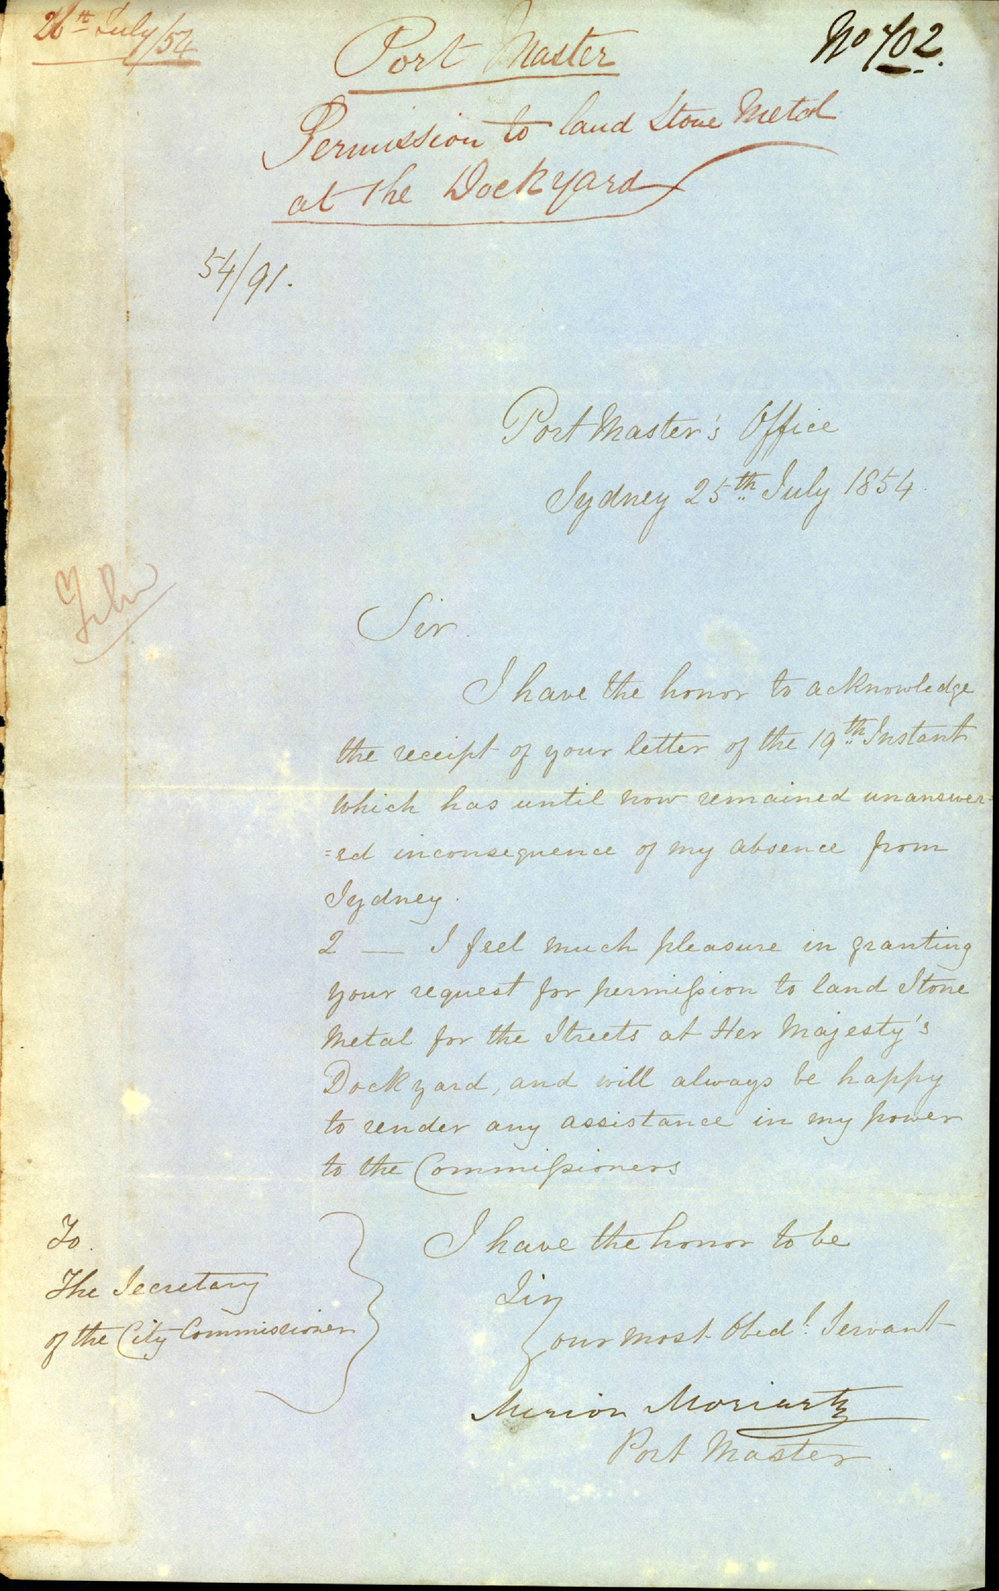 26th July/54
Port Master
No 702.
Permission to land Stone Metal
at the Dockyard
54/91.
Port Master's Office
Sydney 25th July 1854.
File
Sir
I have the honor to acknowledge
the receipt of your letter of the 19th Instant
which has until now remained unanswer-
=ed inconsequence of my absence from
Sydney.
2 — I feel much pleasure in granting
your request for permission to land Stone
Metal for the Streets at Her Majesty's
Dockyard, and will always be happy
to render any assistance in my power
to the Commissioners
I have the honor to be
Sir
Your most Obedt. Servant
Merion Moriarty
Port Master
To
The Secretary
of the City Commissioner